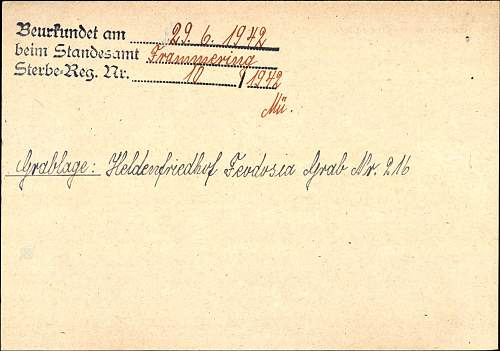 Beurkundet am 29. 6. 1942
beim Standesamt Frammering
Sterbe-Reg. Nr. 10 / 1942
Mü.
Grablage: Heldenfriedhof Feodosia Grab Nr. 216